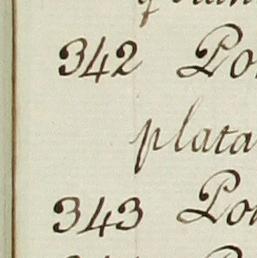 342 Po
plata
343 Po